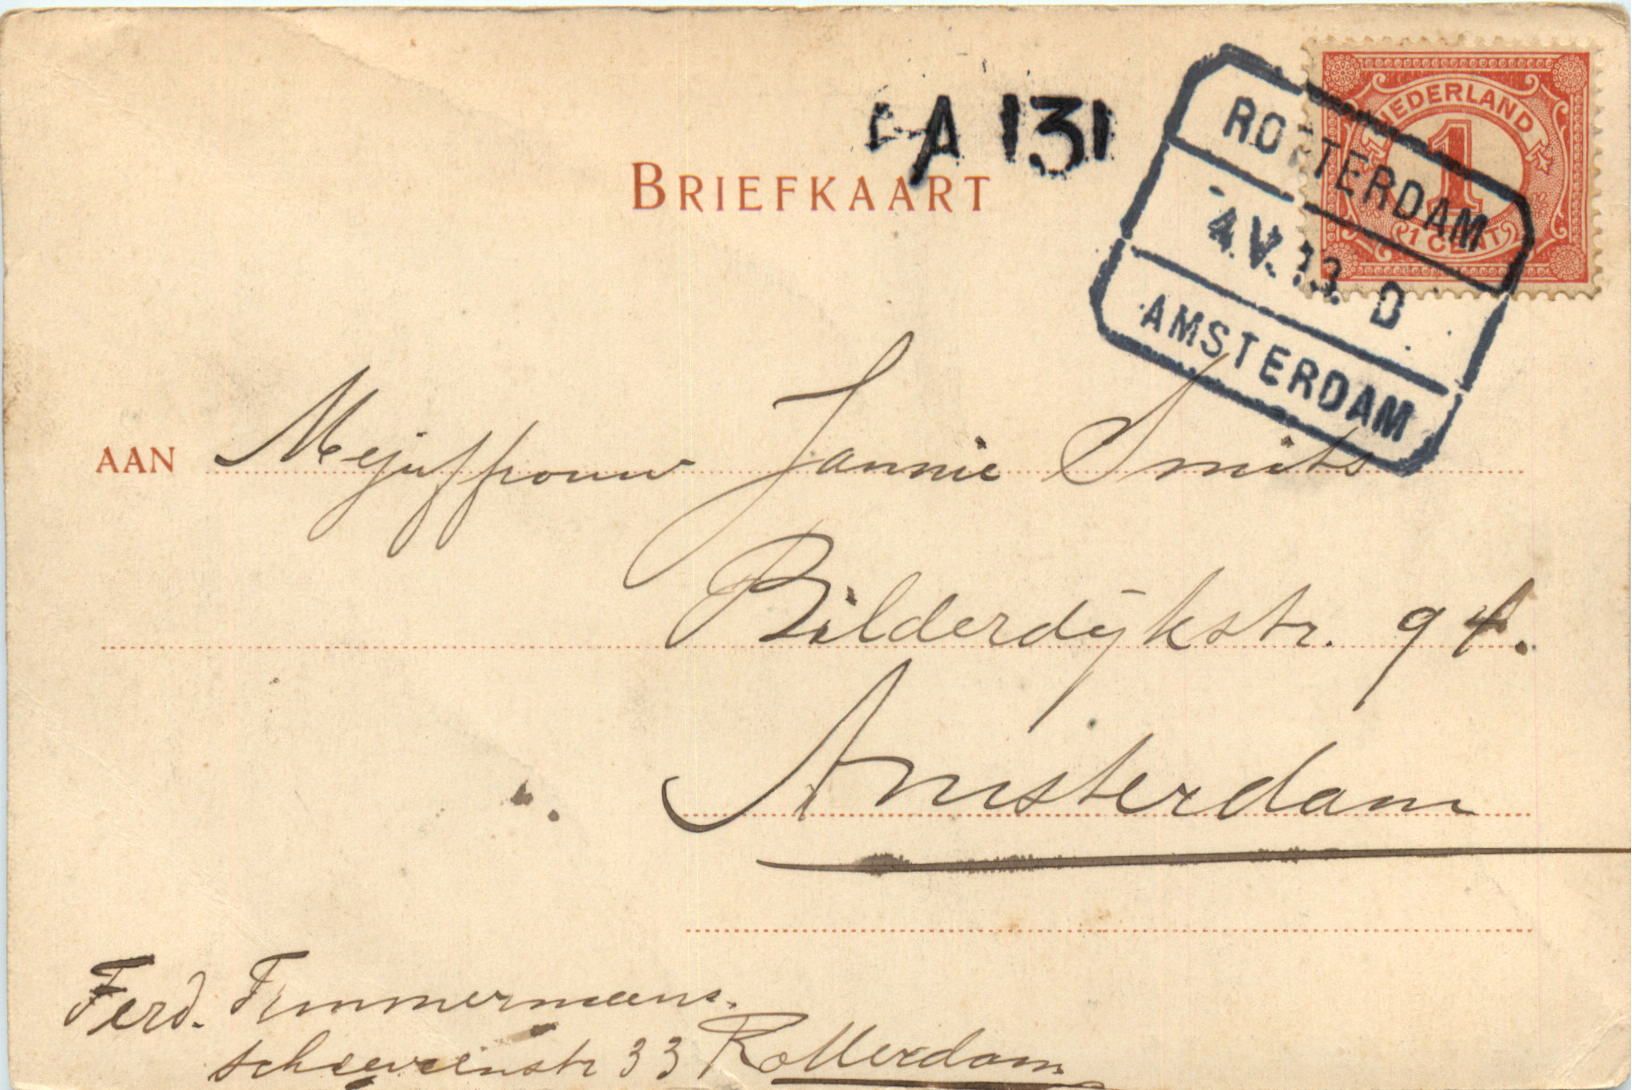 A 131
BRIEFKAART
NEDERLAND
1
1 CENT
ROTTERDAM
4.V.13. D
AMSTERDAM
AAN Mejuffrouw Jannie Smits
Bilderdijkstr. 94.
Amsterdam
Ferd. Timmermans.
33 Rotterdam